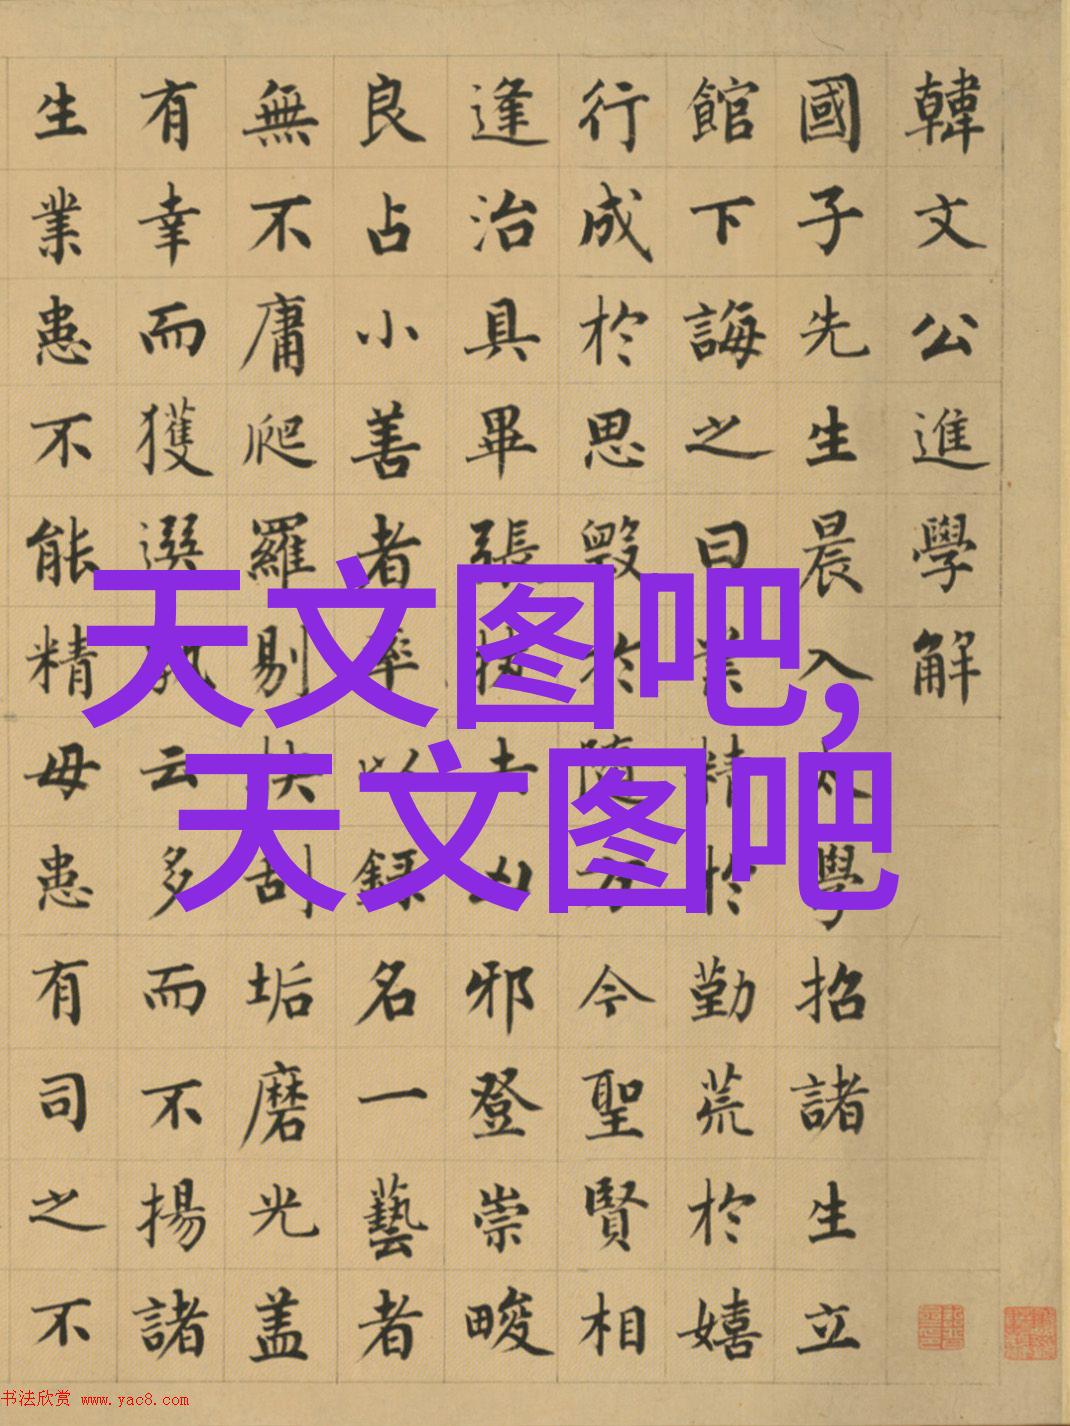 韓文公進學解
國子先生晨入太學招諸生立
館下誨之曰業精於勤荒於嬉
行成於思毀於隨方今聖賢相
逢治具畢張拔去凶邪登崇畯
良占小善者率以録名一藝者
無不庸爬羅剔抉刮垢磨光盖
有幸而獲選孰云多而不揚諸
生業患不能精母患有司之不
天文图吧，
天文图吧
书法欣赏 www.yac8.com